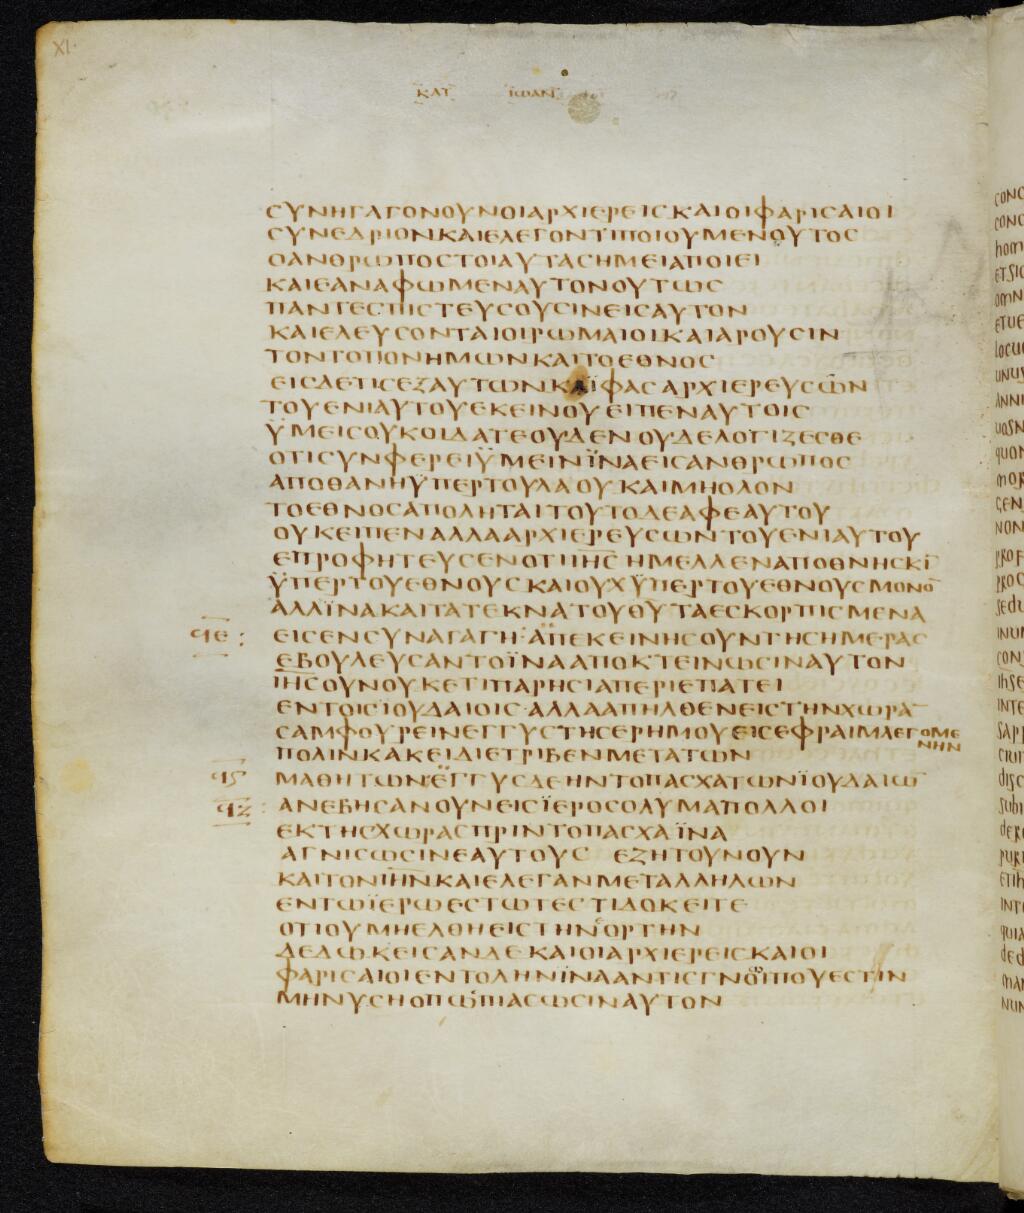 XI·
ΚΑΤ ΙΩΑΝ
ϹΥΝΗΓΑΓΟΝΟΥΝΟΙΑΡΧΙΕΡΕΙϹΚΑΙΟΙΦΑΡΙϹΑΙΟΙ
ϹΥΝΕΔΡΙΟΝΚΑΙΕΛΕΓΟΝΤΙΠΟΙΟΥΜΕΝΟΥΤΟϹ
ΟΑΝΘΡΩΠΟϹΤΟΙΑΥΤΑϹΗΜΕΙΑΠΟΙΕΙ
ΚΑΙΕΑΝΑΦΩΜΕΝΑΥΤΟΝΟΥΤΩϹ
ΠΑΝΤΕϹΠΙϹΤΕΥϹΟΥϹΙΝΕΙϹΑΥΤΟΝ
ΚΑΙΕΛΕΥϹΟΝΤΑΙΟΙΡΩΜΑΙΟΙΚΑΙΑΡΟΥϹΙΝ
ΤΟΝΤΟΠΟΝΗΜΩΝΚΑΙΤΟΕΘΝΟϹ
ΕΙϹΔΕΤΙϹΕΞΑΥΤΩΝΚΑΪΦΑϹΑΡΧΙΕΡΕΥϹΩΝ
ΤΟΥΕΝΙΑΥΤΟΥΕΚΕΙΝΟΥΕΙΠΕΝΑΥΤΟΙϹ
ΫΜΕΙϹΟΥΚΟΙΔΑΤΕΟΥΔΕΝΟΥΔΕΛΟΓΙΖΕϹΘΕ
ΟΤΙϹΥΝΦΕΡΕΙΫΜΕΙΝΪΝΑΕΙϹΑΝΘΡΩΠΟϹ
ΑΠΟΘΑΝΗΫΠΕΡΤΟΥΛΑΟΥΚΑΙΜΗΟΛΟΝ
ΤΟΕΘΝΟϹΑΠΟΛΗΤΑΙΤΟΥΤΟΔΕΑΦΕΑΥΤΟΥ
ΟΥΚΕΙΠΕΝΑΛΛΑΑΡΧΙΕΡΕΥϹΩΝΤΟΥΕΝΙΑΥΤΟΥ
ΕΠΡΟΦΗΤΕΥϹΕΝΟΤΙΙΗϹΗΜΕΛΛΕΝΑΠΟΘΝΗϹΚΙ̅
ΫΠΕΡΤΟΥΕΘΝΟΥϹΚΑΙΟΥΧΫΠΕΡΤΟΥΕΘΝΟΥϹΜΟΝΟ̅
ΑΛΛΪΝΑΚΑΙΤΑΤΕΚΝΑΤΟΥΘΥΤΑΕϹΚΟΡΠΙϹΜΕΝΑ
ϥΕ : ΕΙϹΕΝϹΥΝΑΓΑΓΗ·ΑΠΕΚΕΙΝΗϹΟΥΝΤΗϹΗΜΕΡΑϹ
ΕΒΟΥΛΕΥϹΑΝΤΟΪΝΑΑΠΟΚΤΕΙΝΩϹΙΝΑΥΤΟΝ
ΙΗϹΟΥΝΟΥΚΕΤΙΠΑΡΗϹΙΑΠΕΡΙΕΠΑΤΕΙ
ΕΝΤΟΙϹΙΟΥΔΑΙΟΙϹ·ΑΛΛΑΑΠΗΛΘΕΝΕΙϹΤΗΝΧΩΡΑ̅
ϹΑΜΦΟΥΡΕΙΝΕΓΓΥϹΤΗϹΕΡΗΜΟΥΕΙϹΕΦΡΑΙΜΛΕΓΟΜΕ
ΝΗΝ
ΠΟΛΙΝΚΑΚΕΙΔΙΕΤΡΙΒΕΝΜΕΤΑΤΩΝ
ϥϚ ΜΑΘΗΤΩΝ·ΕΓΓΥϹΔΕΗΝΤΟΠΑϹΧΑΤΩΝΪΟΥΔΑΙΩ̅
ϥΖ : ΑΝΕΒΗϹΑΝΟΥΝΕΙϹΪΕΡΟϹΟΛΥΜΑΠΟΛΛΟΙ
ΕΚΤΗϹΧΩΡΑϹΠΡΙΝΤΟΠΑϹΧΑΪΝΑ
ΑΓΝΙϹΩϹΙΝΕΑΥΤΟΥϹ ΕΖΗΤΟΥΝΟΥΝ
ΚΑΙΤΟΝΙΗΝΚΑΙΕΛΕΓΑΝΜΕΤΑΛΛΗΛΩΝ
ΕΝΤΩΪΕΡΩΕϹΤΩΤΕϹΤΙΔΟΚΕΙΤΕ
ΟΤΙΟΥΜΗΕΛΘΗΕΙϹΤΗΝΕΟΡΤΗΝ
ΔΕΔΩΚΕΙϹΑΝΔΕΚΑΙΟΙΑΡΧΙΕΡΕΙϹΚΑΙΟΙ
ΦΑΡΙϹΑΙΟΙΕΝΤΟΛΗΝΪΝΑΑΝΤΙϹΓΝΟΙΠΟΥΕϹΤΙΝ
ΜΗΝΥϹΗΟΠΩϹΠΙΑϹΩϹΙΝΑΥΤΟΝ